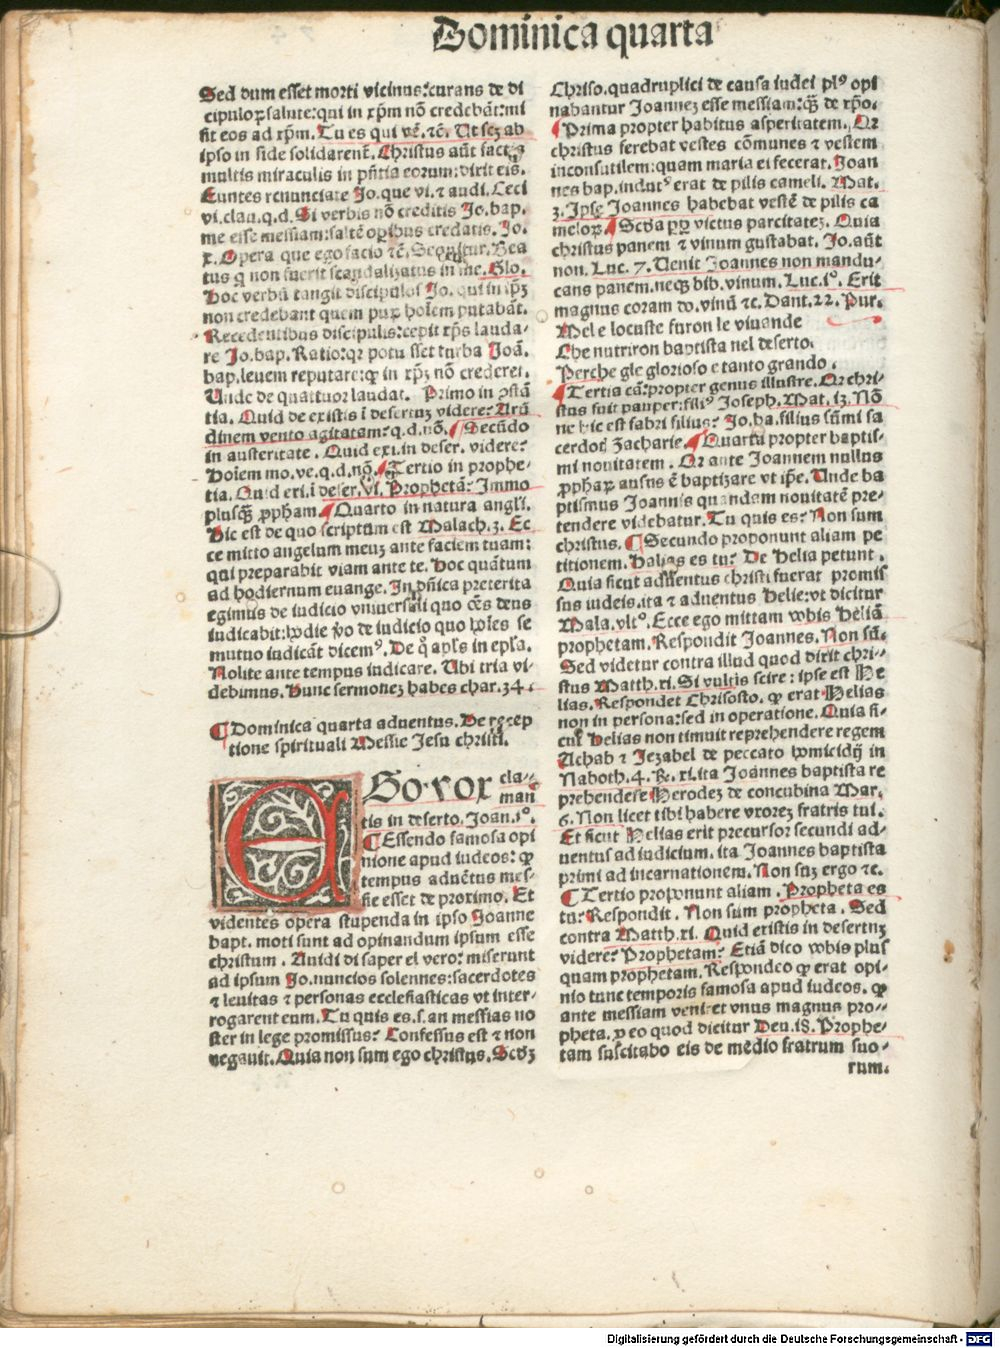 Dominica quarta
Sed dum esset morti vicinus: curans de di
cipuloꝝ salute: qui in xp̄m nō credebāt: mi
sit eos ad xp̄m. Tu es qui vē. ⁊c. Ut scꝫ ab
ipso in fide solidarent̄. Christus aūt factis
multis miraculis in p̄ntia eorum: dixit eis.
Euntes renunciate Jo. que vi. ⁊ audi. Ceci
vi. clau. q.d. Si verbis nō creditis Jo. bap.
me esse messiam: saltē oꝑibus credatis. Jo.
x. Opera que ego facio ⁊c̄. Sequitur. Bea
tus q̄ non fuerit scandalizatus in me. Glo.
Hoc verbū tangit discipulos Jo. qui in ipꝫ
non credebant quem puꝝ hoīem putabāt.
Recedentibus discipulis: cepit xp̄s lauda-
re Jo. bap. Ratio: qꝛ potuisset turba Joā.
bap. leuem reputare: ꝙ in xp̄ꝫ nō crederet.
Unde de quattuor laudat. Primo in ꝯstā
tia. Quid de existis ī desertuꝫ videre? Arū
dinem vento agitatam? q.d. nō. Secūdo
in austeritate. Quid exi. in deser. videre?
Hoīem mo. ve. q.d. nō. Tertio in prophe-
tia. Quid exi. ī deser. vi. Prophetā? Immo
plusqꝫ ꝓpham. Quarto in natura angli.
Hic est de quo scriptum est Malach. 3. Ec
ce mitto angelum meuꝫ ante faciem tuam:
qui preparabit viam ante te. Hoc quātum
ad hodiernum euange. In dn̄ica preterita
egimus de iudicio vniuersali quo oēs deus
iudicabit: hodie ꝟo de iudicio quo hoīes se
mutuo iudicāt dicem⁹. De q̊ apl̄s in epl̄a.
Nolite ante tempus iudicare. Ubi tria vi-
debimus. Hunc sermoneꝫ habes char. 34.
¶ Dominica quarta aduentus. De recep
tione spirituali Messie Jesu christi.
EGo vox cla-
man
tis in deserto. Joan. 1°.
¶ Essendo famosa opi
nione apud iudeos: ꝙ
tempus aduētus mes-
sie esset de proximo. Et
videntes opera stupenda in ipso Joanne
bapt. moti sunt ad opinandum ipsum esse
christum. Auidi di saper el vero: miserunt
ad ipsum Jo. nuncios solennes: sacerdotes
⁊ leuitas ⁊ personas ecclesiasticas vt inter-
rogarent eum. Tu quis es. s. an messias no
ster in lege promissus? Confessus est ⁊ non
negauit. Quia non sum ego christus. Scd̄ꝫ
Chriso. quadruplici de causa iudei pl⁹ opi
nabantur Joanneꝫ esse messiam: qꝫ de xp̄o.
¶ Prima propter habitus asperitatem. Qꝛ
christus ferebat vestes cōmunes ⁊ vestem
inconsutilem: quam maria ei fecerat. Joan
nes bap. indut⁹ erat de pilis cameli. Mat.
3. Ipse Joannes habebat vestē de pilis ca
meloꝝ. ¶ Scd̄a ꝓꝑ victus parcitateꝫ. Quia
christus panem ⁊ vinum gustabat. Jo. aūt
non. Luc. 7. Uenit Joannes non mandu-
cans panem. neqꝫ bib. vinum. Luc. 1°. Erit
magnus coram do. vinū ⁊c. Dant. 22. Pur.
Mel e locuste furon le viuande
Che nutriron baptista nel deserto.
Perche gle glorioso e tanto grando.
¶ Tertia cā: propter genus illustre. Qꝛ chri-
stus fuit pauper: fili⁹ Joseph. Mat. 13. Nō
ne hic est fabri filius? Jo. ba. filius sūmi sa
cerdoꝭ Zacharie. ¶ Quarta propter baptis-
mi nouitatem. Qꝛ ante Joannem nullus
ꝓphaꝝ ausus ē baptizare vt ip̄e. Unde ba
ptismus Joannis quandam nouitatē pre-
tendere videbatur. Tu quis es? Non sum
christus. ¶ Secundo proponunt aliam pe
titionem. Helias es tu? De Helia petunt.
Quia sicut aduentus christi fuerat promis
sus iudeis. ita ⁊ aduentus Helie: vt dicitur
Mala. vlt°. Ecce ego mittam vobis Heliā
prophetam. Respondit Joannes. Non sū.
Sed videtur contra illud quod dixit chri-
stus Matth. xi. Si vultis scire: ipse est He
lias. Respondet Chrisosto. ꝙ erat Helias
non in persona: sed in operatione. Quia si-
cut Helias non timuit reprehendere regem
Achab ⁊ Jezabel de peccato homicidij in
Naboth. 4. Re. xi. ita Joannes baptista re
prehendese Herodeꝫ de concubina Mar.
6. Non licet tibi habere vxoreꝫ fratris tui.
Et sicut Helias erit precursor secundi ad-
uentus ad iudicium. ita Joannes baptista
primi ad incarnationem. Non suꝫ ergo ⁊c.
¶ Tertio proponunt aliam. Propheta es
tu? Respondit. Non sum propheta. Sed
contra Matth. xi. Quid existis in desertuꝫ
videre? Prophetam? Etiā dico vobis plus
quam prophetam. Respondeo ꝙ erat opi-
nio tunc temporis famosa apud iudeos. ꝙ
ante messiam veniret vnus magnus pro-
pheta. ꝑ eo quod dicitur Deu. 18. Prophe-
tam suscitabo eis de medio fratrum suo-
rum.
Digitalisierung gefördert durch die Deutsche Forschungsgemeinschaft - DFG